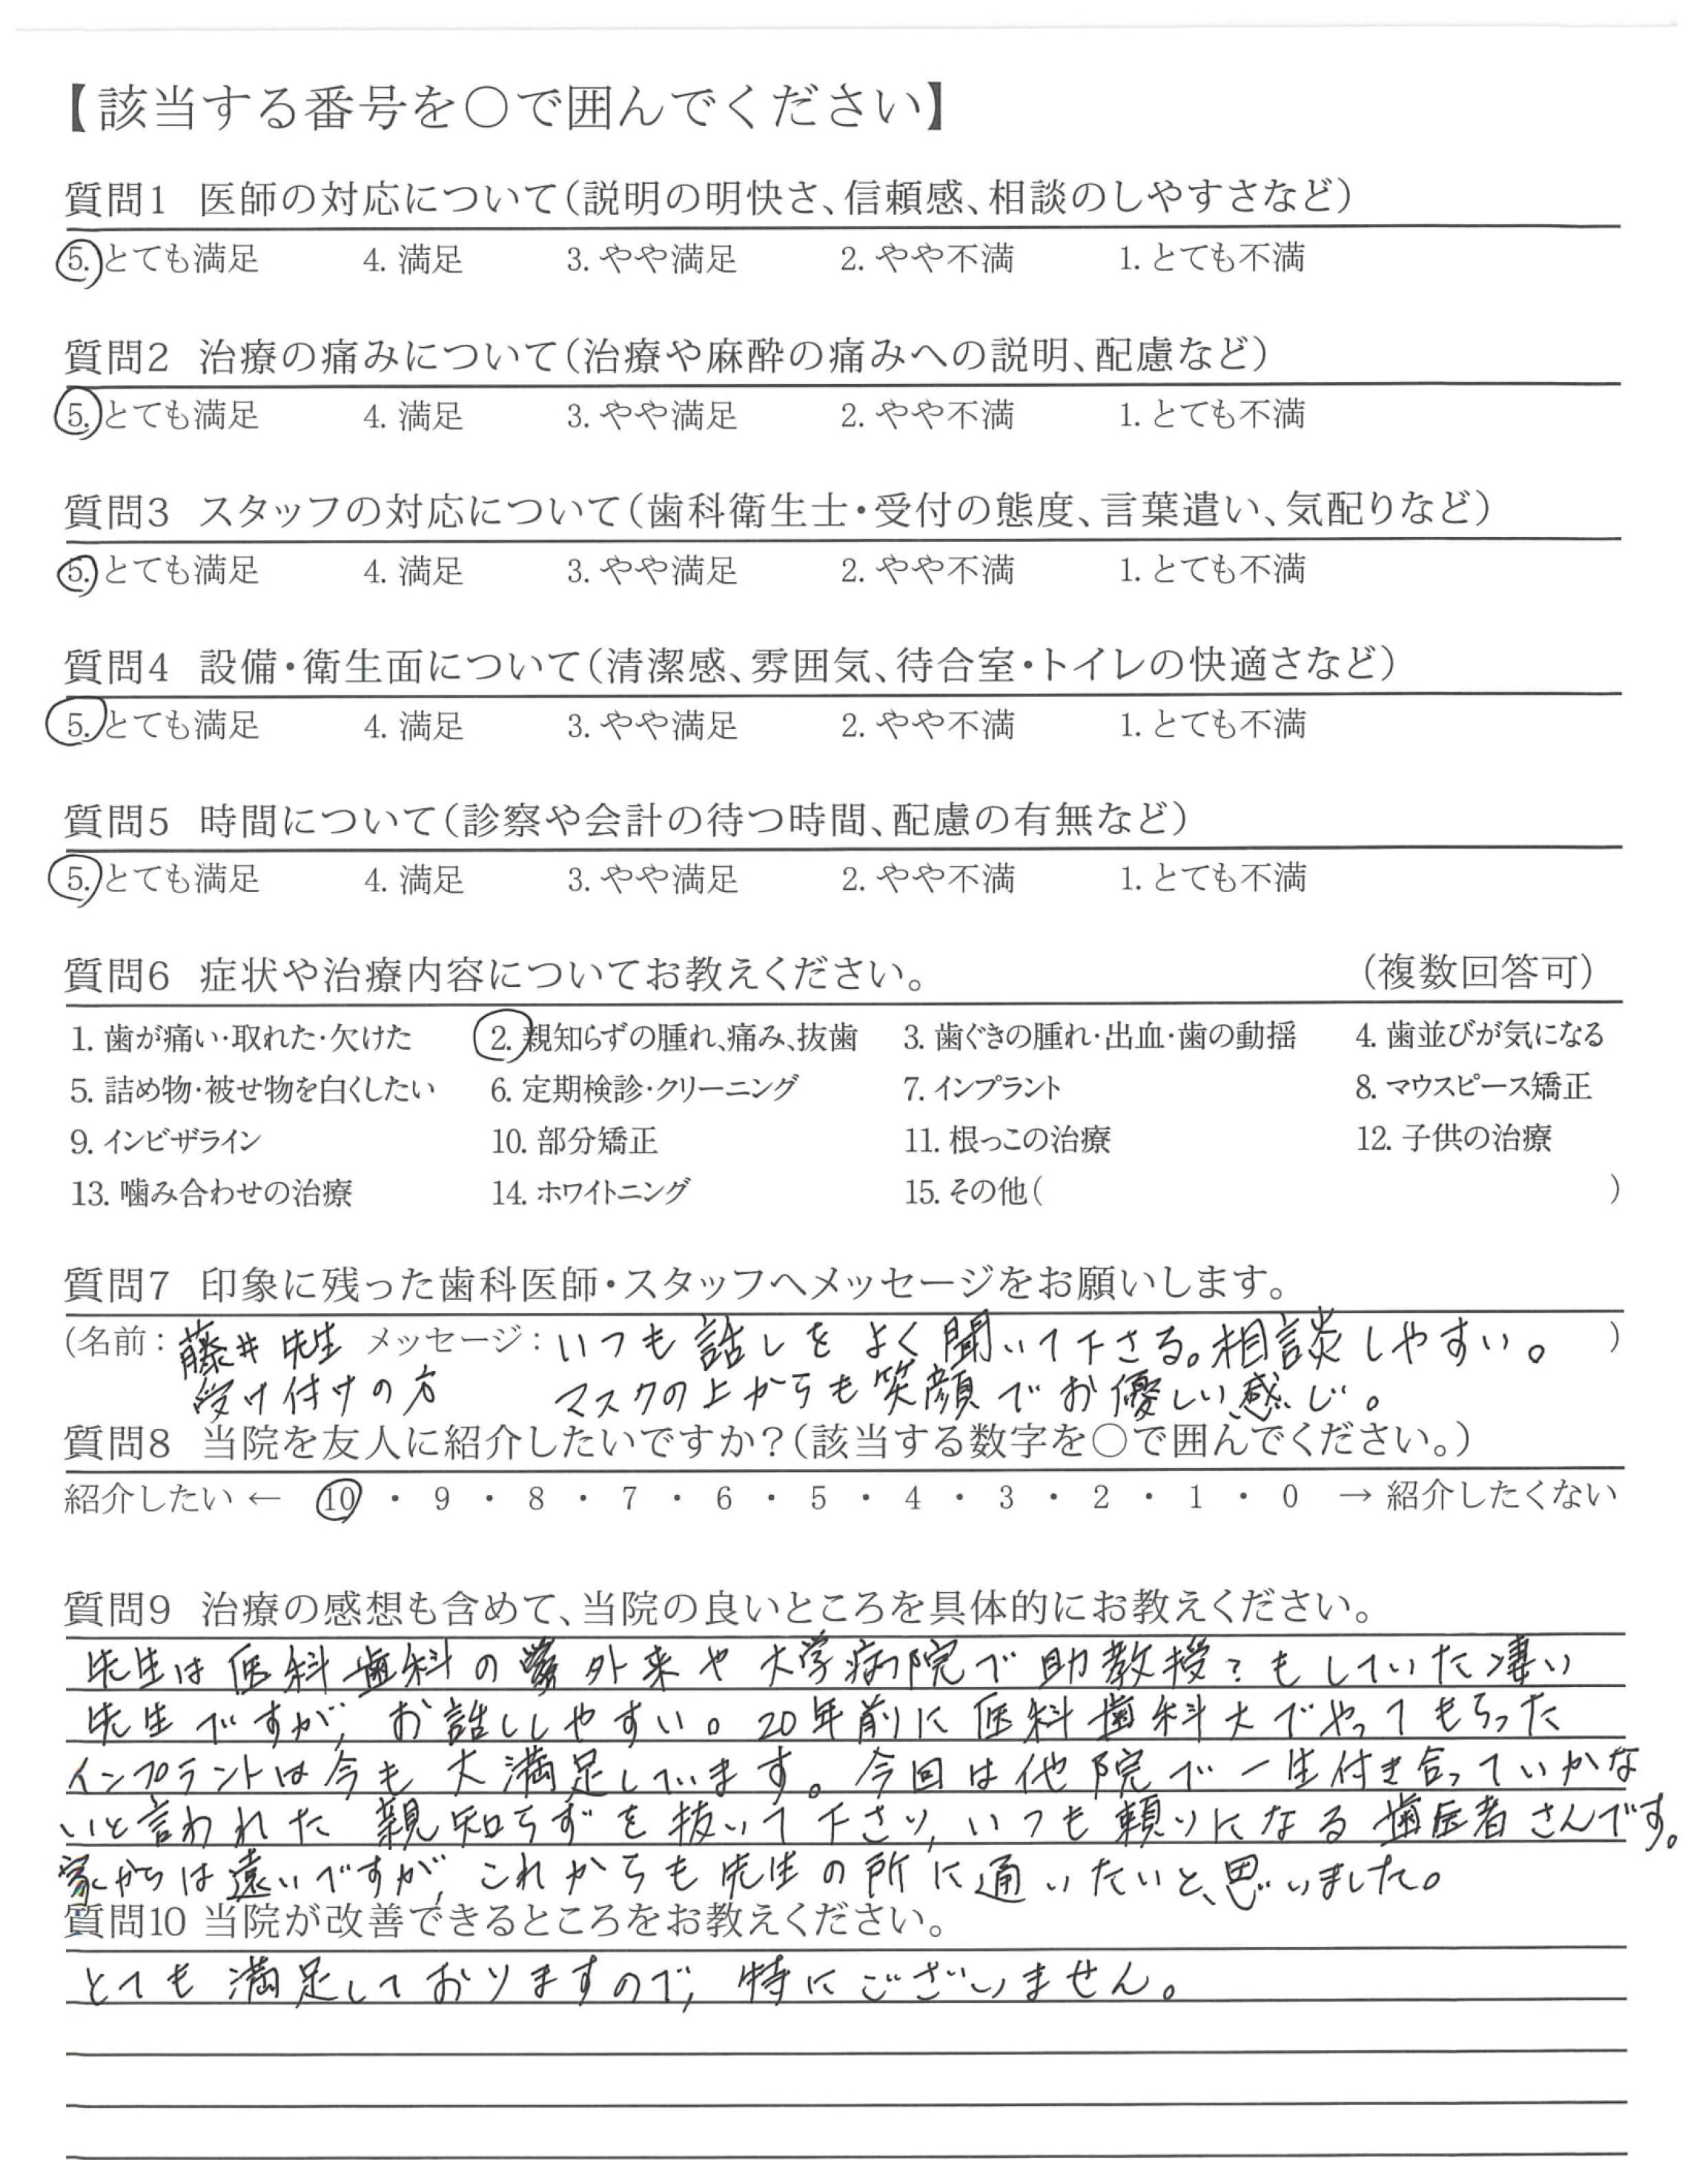 【該当する番号を〇で囲んでください】
質問1 医師の対応について(説明の明快さ、信頼感、相談のしやすさなど)
5. とても満足 4. 満足 3. やや満足 2. やや不満 1. とても不満
質問2 治療の痛みについて(治療や麻酔の痛みへの説明、配慮など)
5. とても満足 4. 満足 3. やや満足 2. やや不満 1. とても不満
質問3 スタッフの対応について(歯科衛生士・受付の態度、言葉遣い、気配りなど)
5. とても満足 4. 満足 3. やや満足 2. やや不満 1. とても不満
質問4 設備・衛生面について(清潔感、雰囲気、待合室・トイレの快適さなど)
5. とても満足 4. 満足 3. やや満足 2. やや不満 1. とても不満
質問5 時間について(診察や会計の待つ時間、配慮の有無など)
5. とても満足 4. 満足 3. やや満足 2. やや不満 1. とても不満
質問6 症状や治療内容についてお教えください。 (複数回答可)
1. 歯が痛い・取れた・欠けた 2. 親知らずの腫れ、痛み、抜歯 3. 歯ぐきの腫れ・出血・歯の動揺 4. 歯並びが気になる
5. 詰め物・被せ物を白くしたい 6. 定期検診・クリーニング 7. インプラント 8. マウスピース矯正
9. インビザライン 10. 部分矯正 11. 根っこの治療 12. 子供の治療
13. 噛み合わせの治療 14. ホワイトニング 15. その他( )
質問7 印象に残った歯科医師・スタッフへメッセージをお願いします。
(名前: 藤井先生 メッセージ: いつも話しをよく聞いて下さる。相談しやすい。 )
受け付けの方 マスクの上からも笑顔でお優しい感じ。
質問8 当院を友人に紹介したいですか?(該当する数字を〇で囲んでください。)
紹介したい ← 10 ・ 9 ・ 8 ・ 7 ・ 6 ・ 5 ・ 4 ・ 3 ・ 2 ・ 1 ・ 0 → 紹介したくない
質問9 治療の感想も含めて、当院の良いところを具体的にお教えください。
先生は医科歯科の外来や大学病院で助教授?もしていた凄い
先生ですが、お話ししやすい。20年前に医科歯科大でやってもらった
インプラントは今も大満足しています。今回は他院で一生付き合っていかな
いと言われた親知らずを抜いて下さり、いつも頼りになる歯医者さんです。
家からは遠いですが、これからも先生の所に通いたいと、思いました。
質問10 当院が改善できるところをお教えください。
とても満足しておりますので、特にございません。